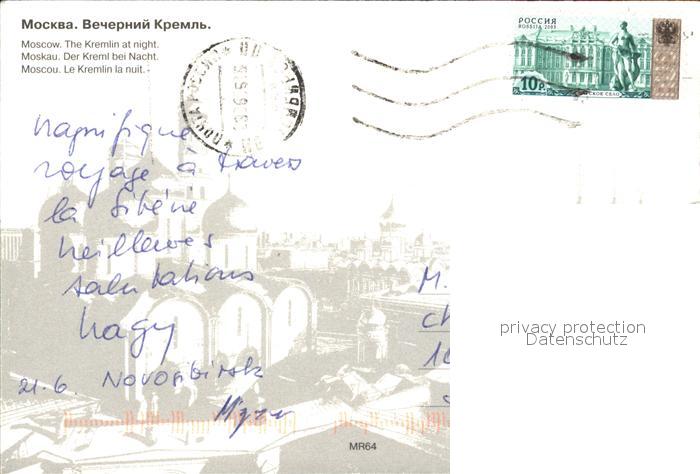 Москва. Вечерний Кремль.
Moscow. The Kremlin at night.
Moskau. Der Kreml bei Nacht.
Moscou. Le Kremlin la nuit.
РОССИЯ
ROSSIJA 2003
10р
magnifique
voyage à travers
la Sibérie
meilleures
salutations
Nagy
21.6. Novosibirsk
M.
ch
16
privacy protection
Datenschutz
MR64